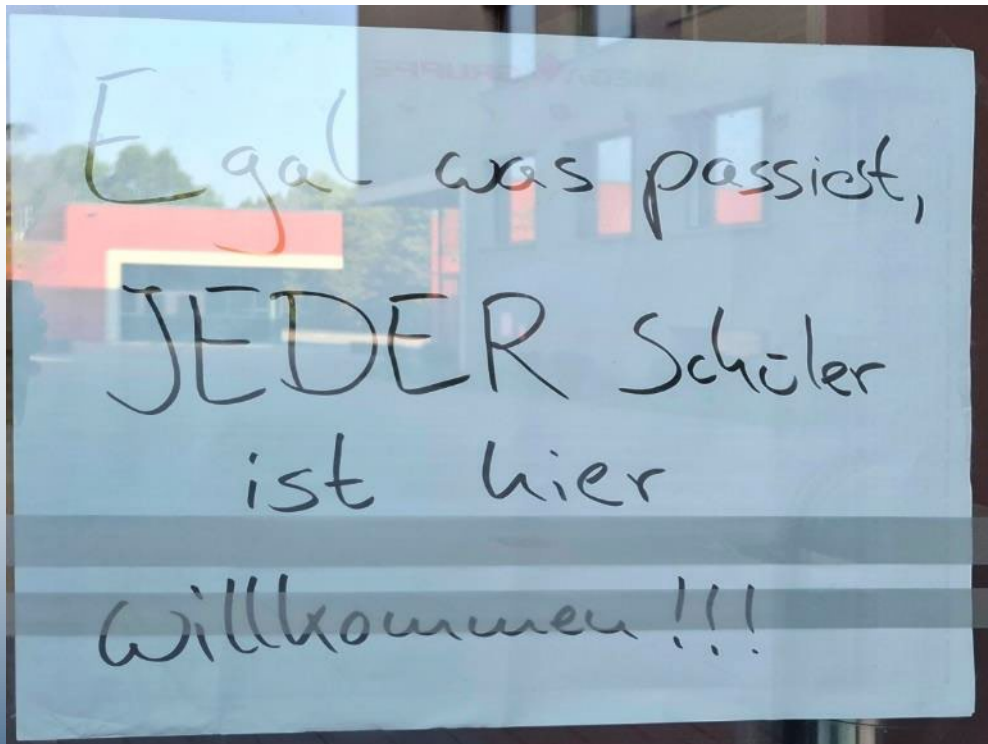 Egal was passiert,
JEDER Schüler
ist hier
willkommen!!!